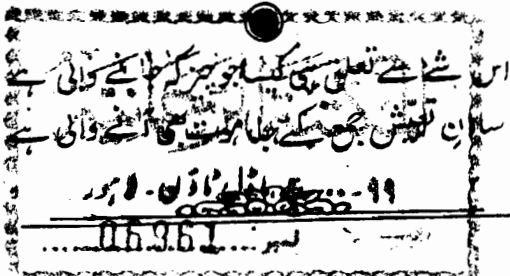 اس شے سے تعلق ہی کیسا جو چیز کہ جانے والی ہے
سامانِ تعیش جمع کئے جا موت بھی آنے والی ہے
۹۹ - ... ماڈل ٹاؤن - لاہور
نمبر ... 06961